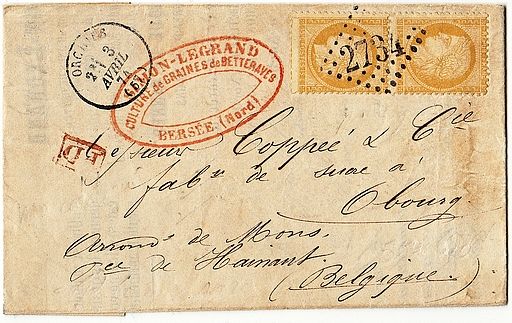 ORCHIES
2E 3
AVRIL
(57)
SIMON-LEGRAND
CULTURE de GRAINES de BETTERAVES
BERSÉE (Nord)
2734
PD
Messieurs Coppée & Cie
fabts de sucre à
Obourg
Arrondt de Mons.
Pce de Hainaut.
(Belgique.)